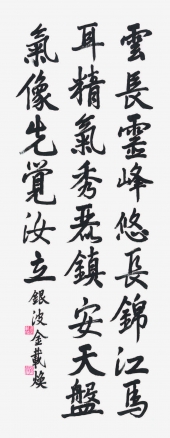 雲長靈峰悠長錦江馬
耳精氣秀孱鎮安天盤
氣像先覺汝立
銀波金載煥